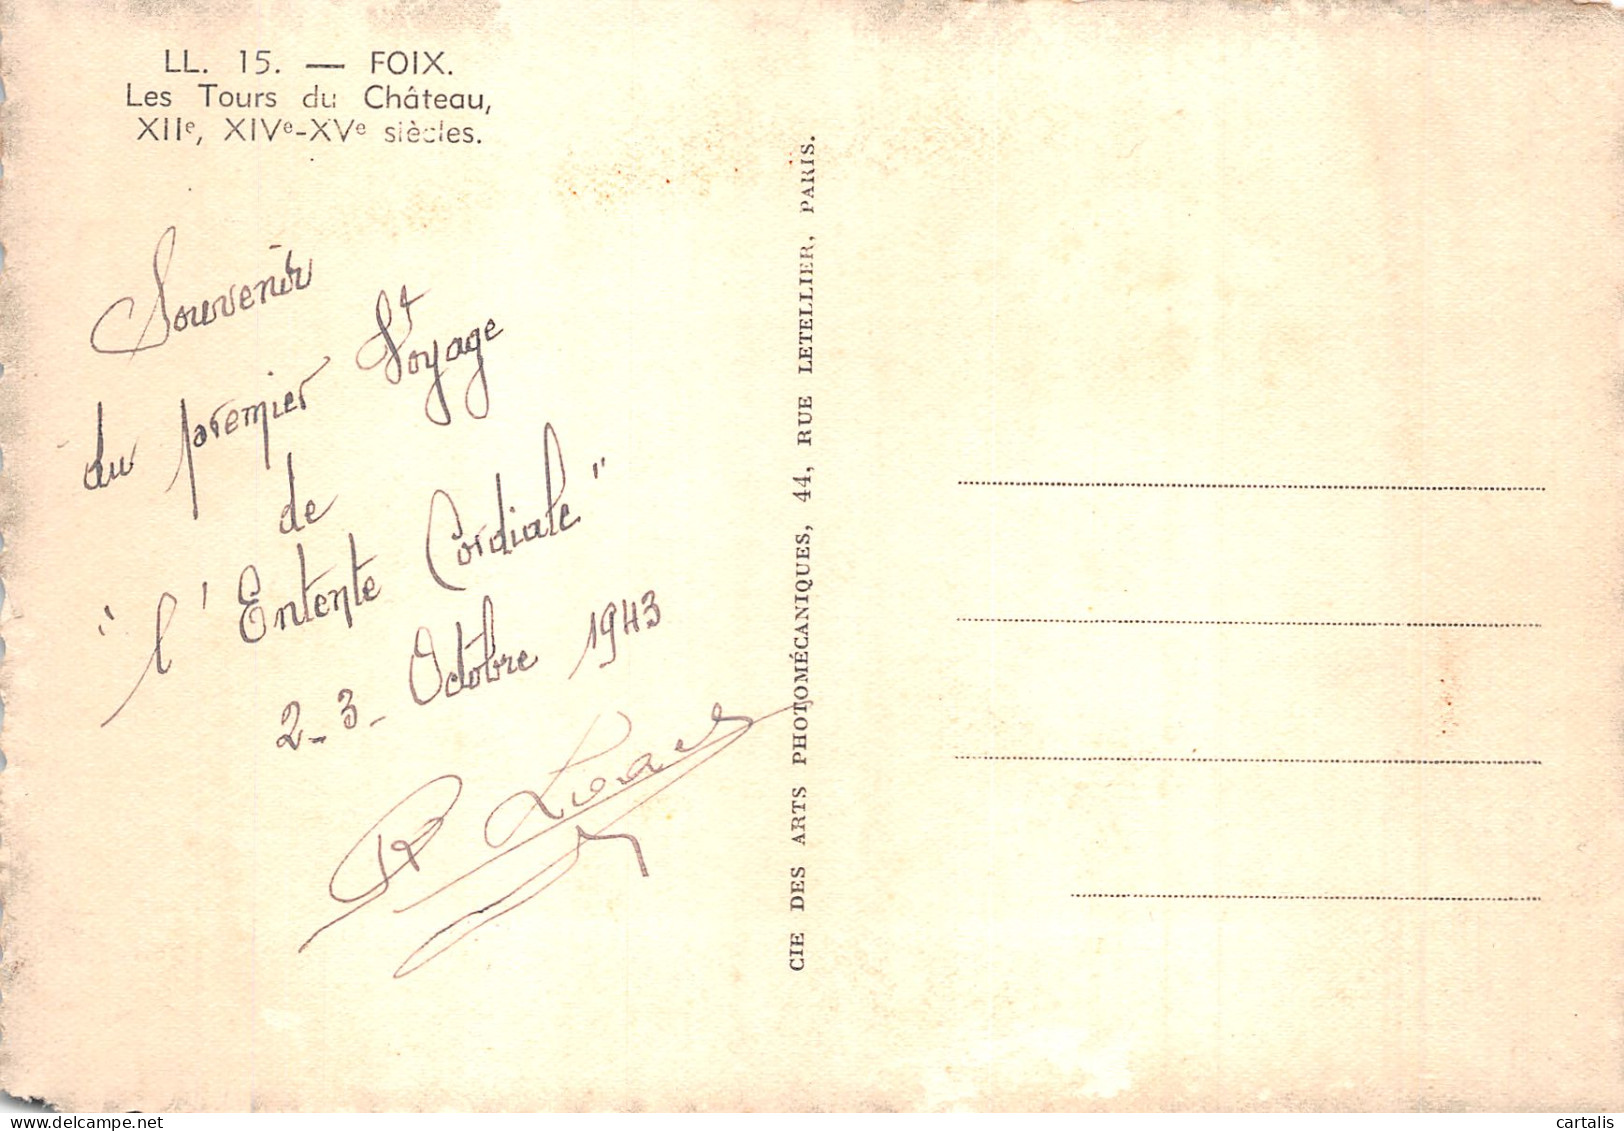 LL. 15. — FOIX.
Les Tours du Château,
XIIe, XIVe-XVe siècles.
Souvenir
du premier Voyage
de
"l'Entente Cordiale"
2-3- Octobre 1943
R
CIE DES ARTS PHOTOMÉCANIQUES, 44, RUE LETELLIER, PARIS.
cartalis